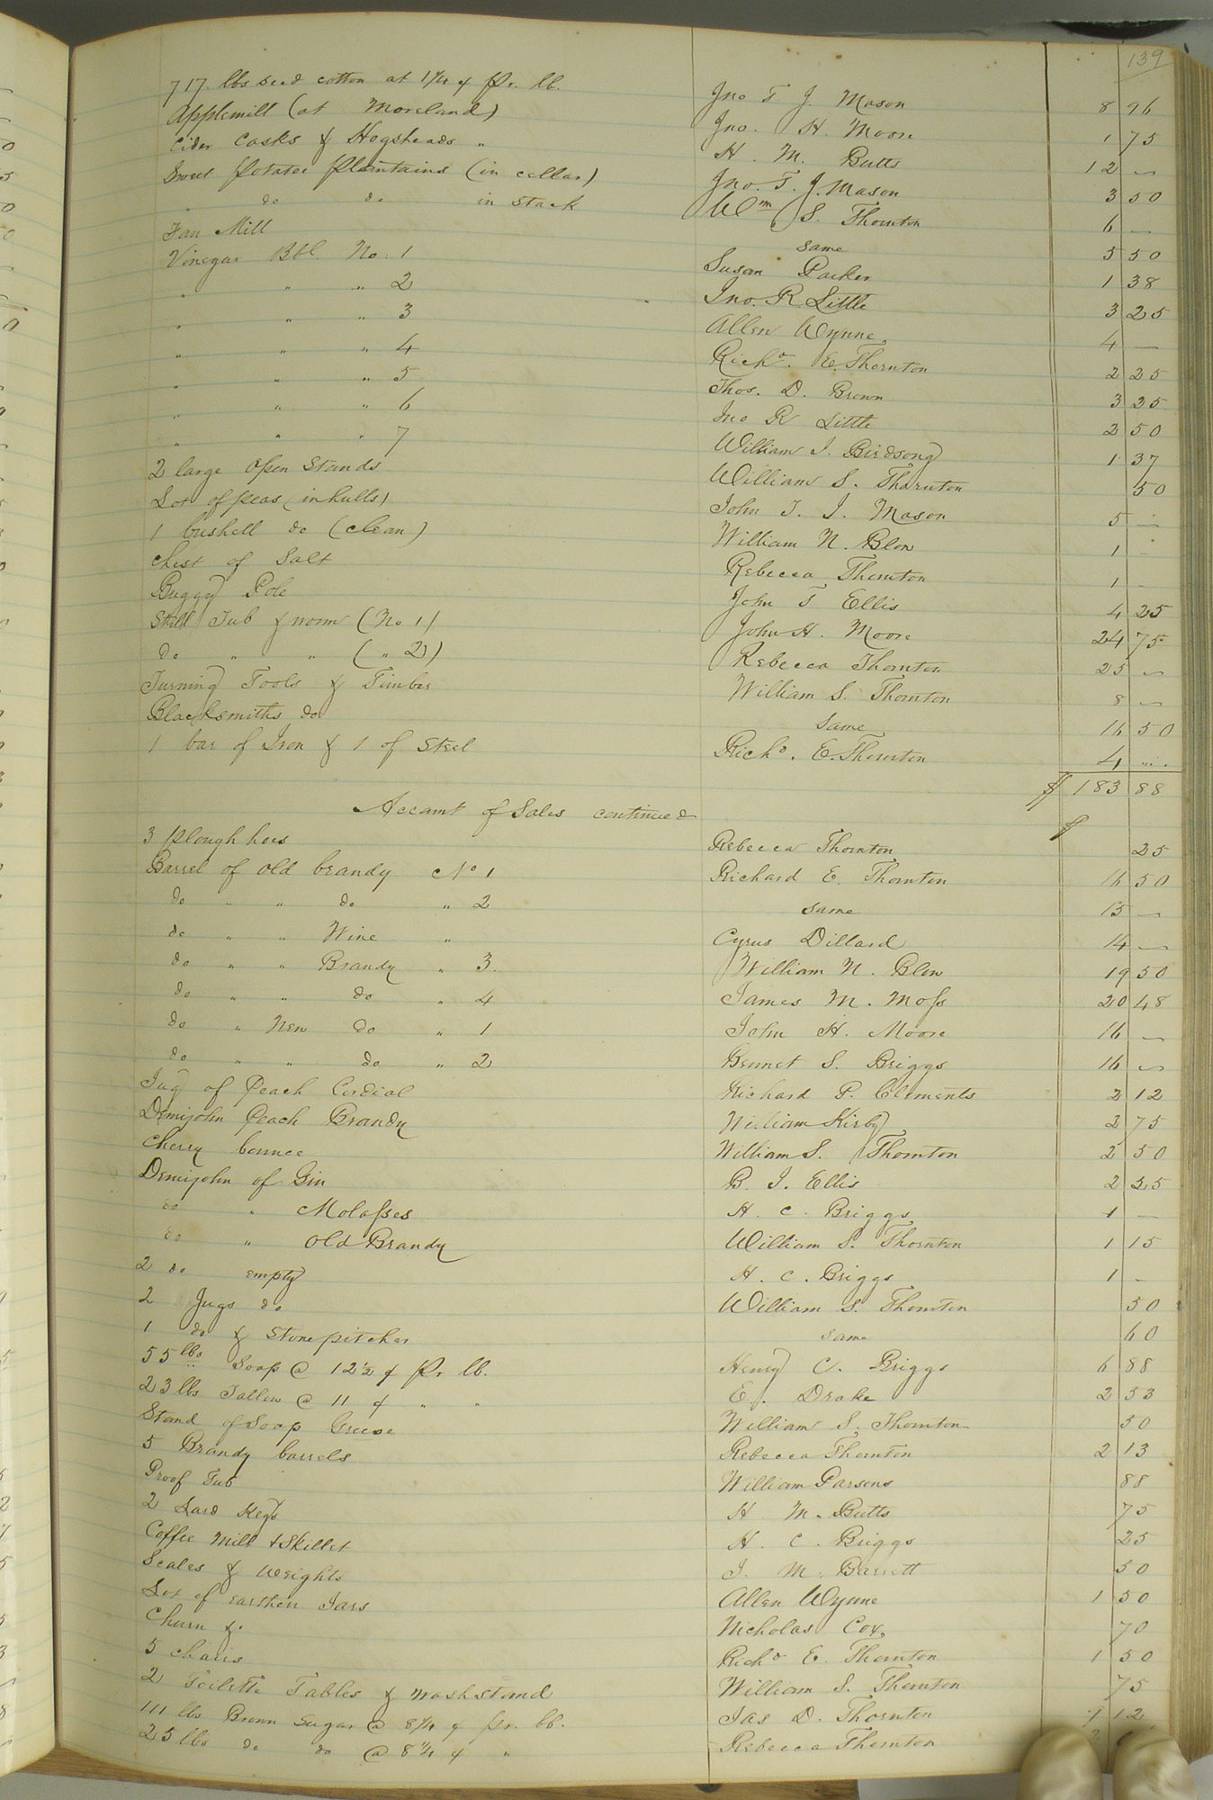 139
717 lbs seed cotton at 1¼ ¢ Pr. lb. Jno T J. Mason 8 96
Applemill (at Moreland) Jno. H. Moore 1 75
Cider Casks & Hogsheads " H. M. Butts 12 —
Sweet Potatoe Plantains (in cellar) Jno. T. J. Mason 3 50
" do do in stack Wm S. Thornton 6 —
Fan Mill same 5 50
Vinegar Bbl. No. 1 Susan Parker 1 38
" " " 2 Jno. R. Little 3 25
" " " 3 Allen Wynne 4 —
" " " 4 Richd. E. Thornton 2 25
" " " 5 Thos. D. Brown 3 25
" " " 6 Jno R Little 2 50
" " " 7 William J. Birdsong 1 37
2 large open Stands William S. Thornton 50
Lot of peas (in hulls) John T. J. Mason 5 —
1 bushell do (clean) William N. Blow 1 —
Chest of Salt Rebecca Thornton 1 —
Buggy Pole John T Ellis 4 25
Still Tub & worm (No 1) John H. Moore 24 75
Do " " ( " 2) Rebecca Thornton 25 —
Turning Tools & Timber William S. Thornton 8 —
Blacksmiths do Same 16 50
1 bar of Iron & 1 of Steel Richd. E. Thornton 4 —
$ 183 88
Accamt of Sales continued $
3 Plough hoes Rebecca Thornton 25
Barrel of old brandy No 1 Richard E. Thornton 16 50
do " " do " 2 same 15 —
do " " Wine " Cyrus Dillard 14 —
do " " Brandy " 3. William N. Blow 19 50
do " " do " 4 James M. Moss 20 48
do " New do " 1 John H. Moore 16 —
do " " do " 2 Bennet S. Briggs 16 —
Jug of Peach Cordial Richard P. Clements 2 12
Demijohn Peach Brandy William Kirby 2 75
Cherry bounce William S. Thornton 2 50
Demijohn of Gin B. J. Ellis 2 25
do " Molasses H. C. Briggs 1 —
do " Old Brandy William S. Thornton 1 15
2 do empty H. C. Briggs 1 —
2 Jugs do William S. Thornton 50
1 do & Stone pitcher same 60
55 lbs Soap @ 12½ ¢ Pr lb. Henry C. Briggs 6 88
23 lbs Tallow @ 11 ¢ " " E. Drake 2 53
Stand of Soap Grease William S. Thornton 50
5 Brandy barrels Rebecca Thornton 2 13
Proof Tub William Parsons 88
2 Lard Kegs H M. Butts 75
Coffee Mill & Skillet H. C. Briggs 25
Scales & Weights J. M. Barrett 50
Lot of earthen Jars Allen Wynne 1 50
Churn &. Nicholas Cox 70
5 chairs Richd E. Thornton 1 50
2 Toilette Tables & washstand William S. Thornton 75
111 lbs Brown Sugar @ 8¼ ¢ pr. lb. Jas D. Thornton 9 12
25 lbs do do @ 8¼ ¢ " Rebecca Thornton